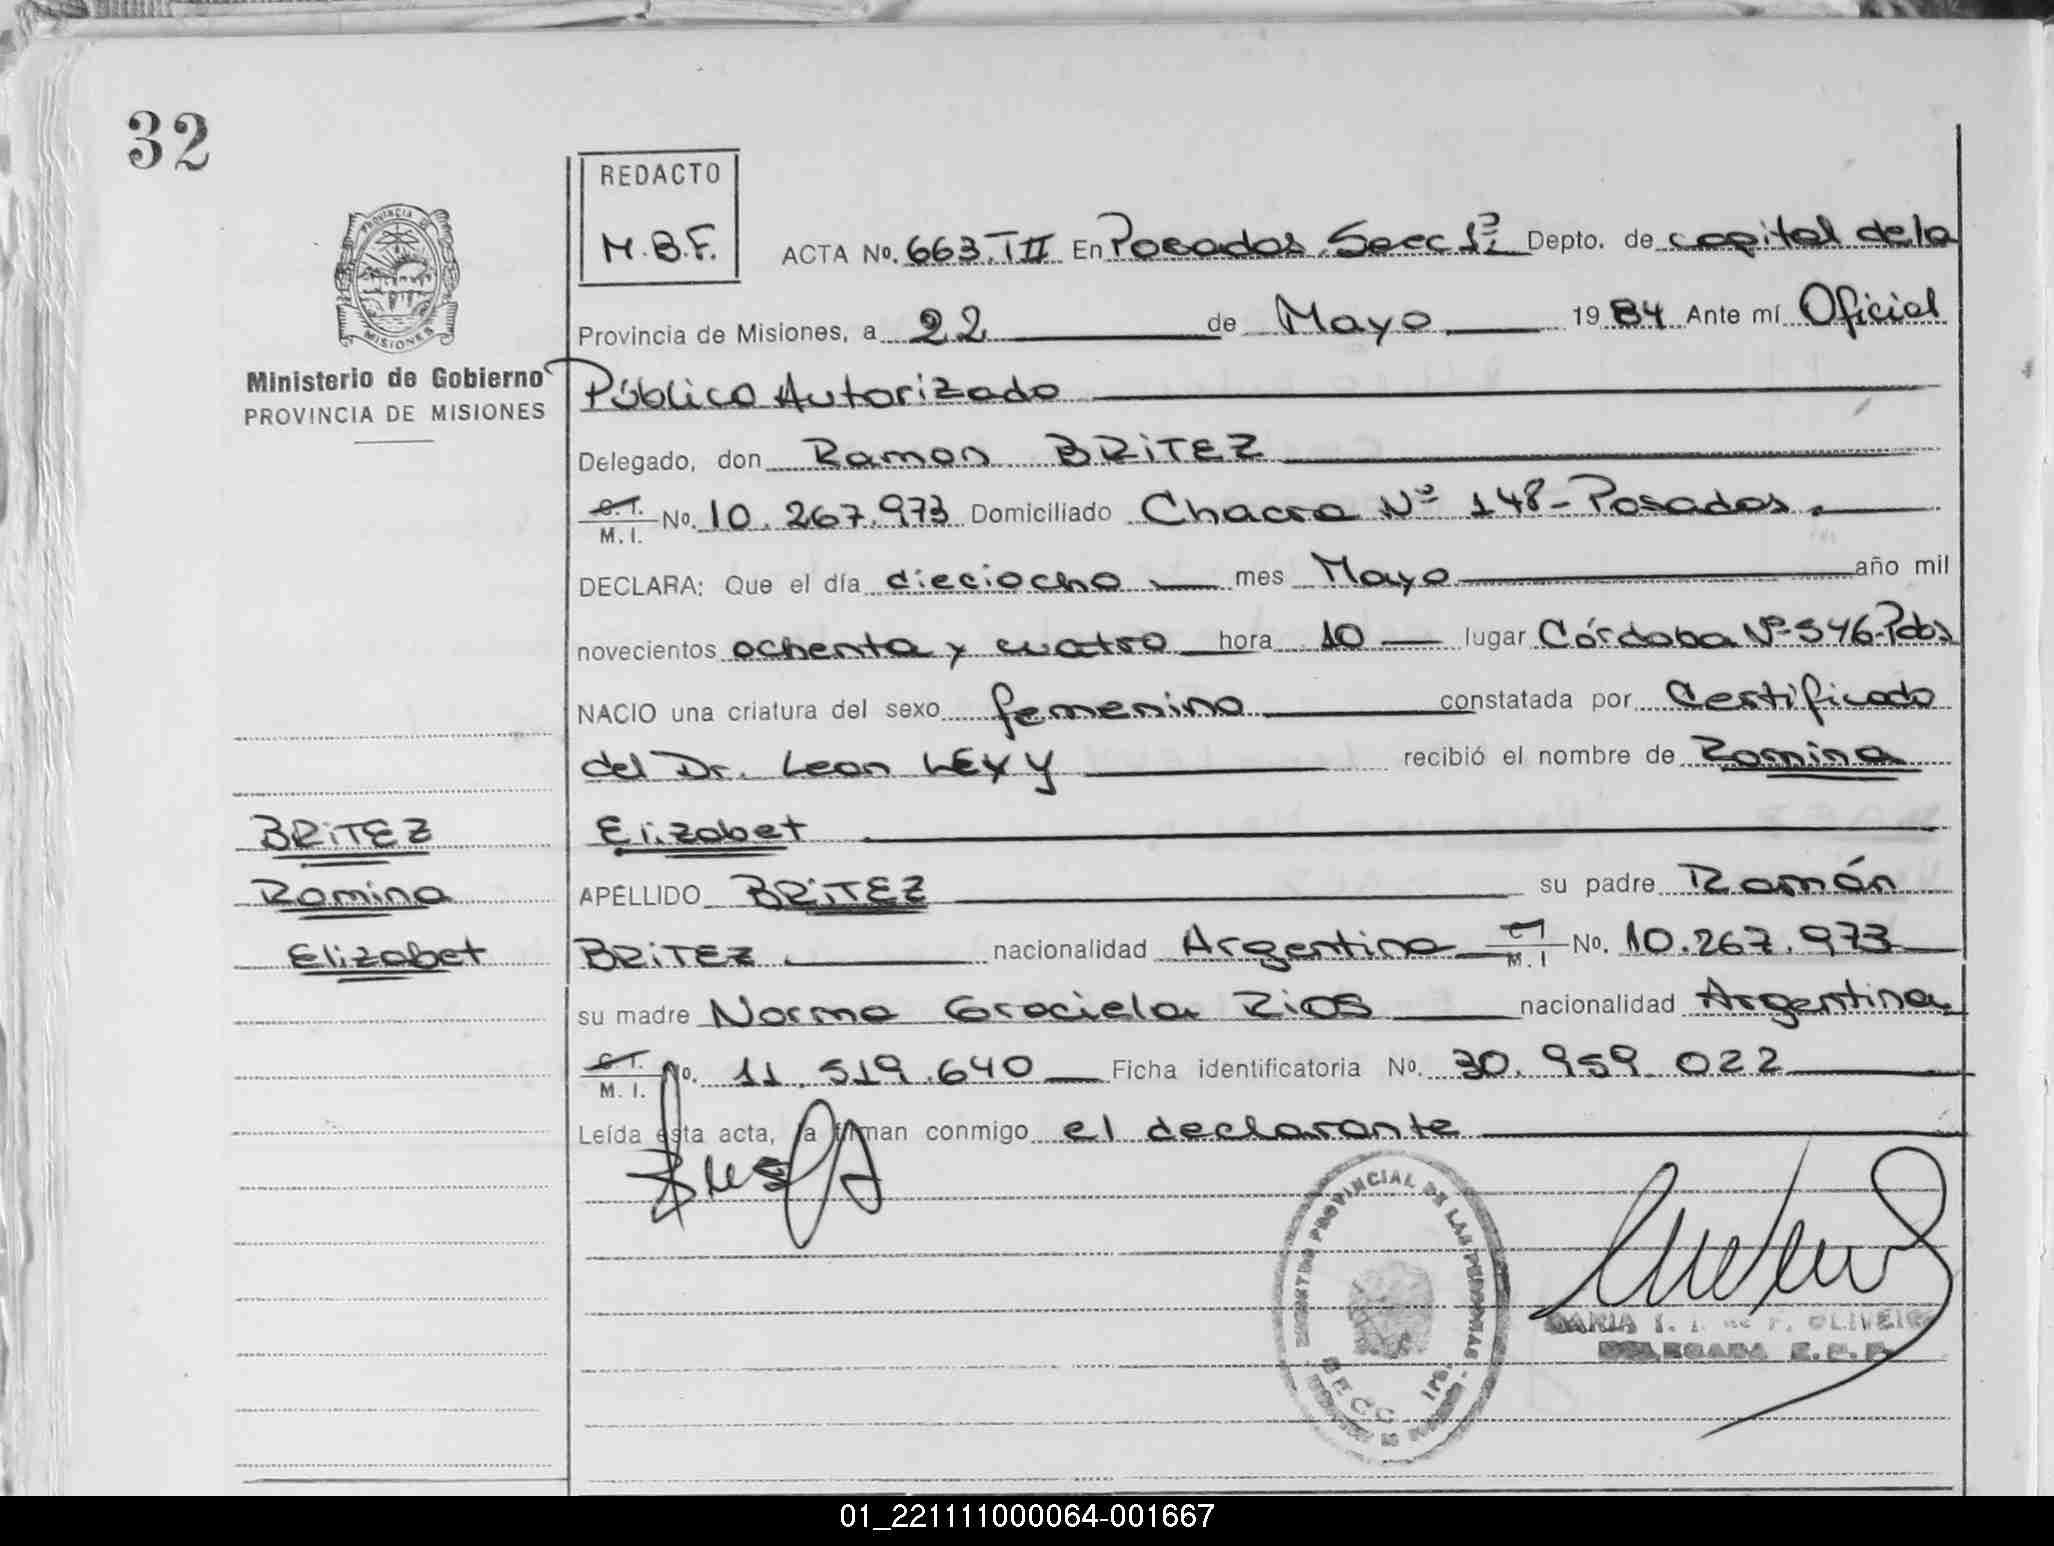 32
REDACTO
M.B.F.
ACTA No. 663.TII En Posadas Secc 1ª; Depto. de capital de la
Provincia de Misiones, a 22 de Mayo 1984 Ante mí Oficial
Ministerio de Gobierno
PROVINCIA DE MISIONES
Público Autorizado
Delegado, don Ramon BRiTEZ
C.I. M. I. No. 10.267.973 Domiciliado Chacra Nº 148-Posadas
DECLARA: Que el día dieciocho mes Mayo año mil
novecientos ochenta y cuatro hora 10 lugar Córdoba Nº 546-Pdas
NACIO una criatura del sexo femenino constatada por Certificado
del Dr. Leon LEXY recibió el nombre de Romina
BRiTEZ
Elizabet
Romina
APELLIDO BRiTEZ su padre Ramón
Elizabet
BRiTEZ nacionalidad Argentina CI M. I No. 10.267.973
su madre Norma Graciela Rios nacionalidad Argentina
C.I. M. I. No. 11.519.640 Ficha identificatoria No. 30.959.022
Leída esta acta, la firman conmigo el declarante
PROVINCIAL DE LAS PERSONAS
SECC 1ra.
MISIONES
MARIA OLIVEIRA
DELEGADA
01_221111000064-001667